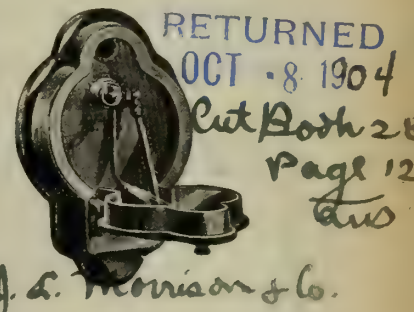 RETURNED
OCT 8 1904
Cut Book 2
Page 12
J. L. Morrison & Co.